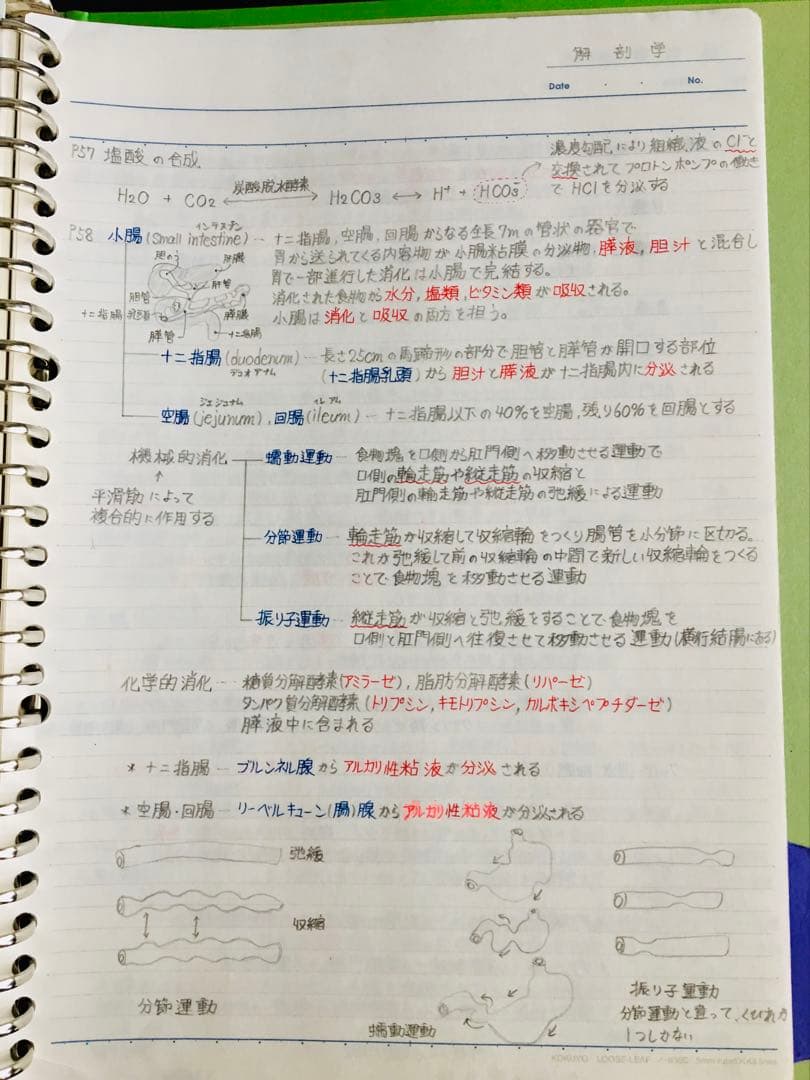 解剖学
Date No.
P57 塩酸の合成
濃度勾配により組織液のCl⁻と
交換されてプロトンポンプの働き
でHClを分泌する
H₂O + CO₂ 炭酸脱水酵素 H₂CO₃ ↔ H⁺ + HCO₃⁻
インテスチン
P58 小腸(Small intestine) -- 十二指腸,空腸,回腸からなる全長7mの管状の器官で
胃から送られてくる内容物が小腸粘膜の分泌物,膵液,胆汁と混合し
胃で一部進行した消化は小腸で完結する。
消化された食物から水分,塩類,ビタミン類が吸収される。
小腸は消化と吸収の両方を担う。
胆のう 肝臓
胆管 肝管
十二指腸乳頭 膵臓
膵管 十二指腸
十二指腸(duodenum) -- 長さ25cmの馬蹄形の部分で胆管と膵管が開口する部位
デュオデナム
(十二指腸乳頭)から胆汁と膵液が十二指腸内に分泌される
ジェジュナム イレアム
空腸(jejunum),回腸(ileum) -- 十二指腸以下の40%を空腸,残り60%を回腸とする
機械的消化
↑
平滑筋によって
複合的に作用する
蠕動運動 -- 食物塊を口側から肛門側へ移動させる運動で
口側の輪走筋や縦走筋の収縮と
肛門側の輪走筋や縦走筋の弛緩による運動
分節運動 -- 輪走筋が収縮して収縮輪をつくり腸管を小分節に区切る。
これが弛緩して前の収縮輪の中間で新しい収縮輪をつくる
ことで食物塊を移動させる運動
振り子運動 -- 縦走筋が収縮と弛緩をすることで食物塊を
口側と肛門側へ往復させて移動させる運動(横行結腸にある)
化学的消化 -- 糖質分解酵素(アミラーゼ),脂肪分解酵素(リパーゼ)
タンパク質分解酵素(トリプシン,キモトリプシン,カルボキシペプチダーゼ)
膵液中に含まれる
* 十二指腸 -- ブルンネル腺からアルカリ性粘液が分泌される
* 空腸・回腸 -- リーベルキューン(腸)腺からアルカリ性粘液が分泌される
弛緩
収縮
分節運動
蠕動運動
振り子運動
分節運動と違って、くびれが
1つしかない
KOKUYO LOOSE-LEAF